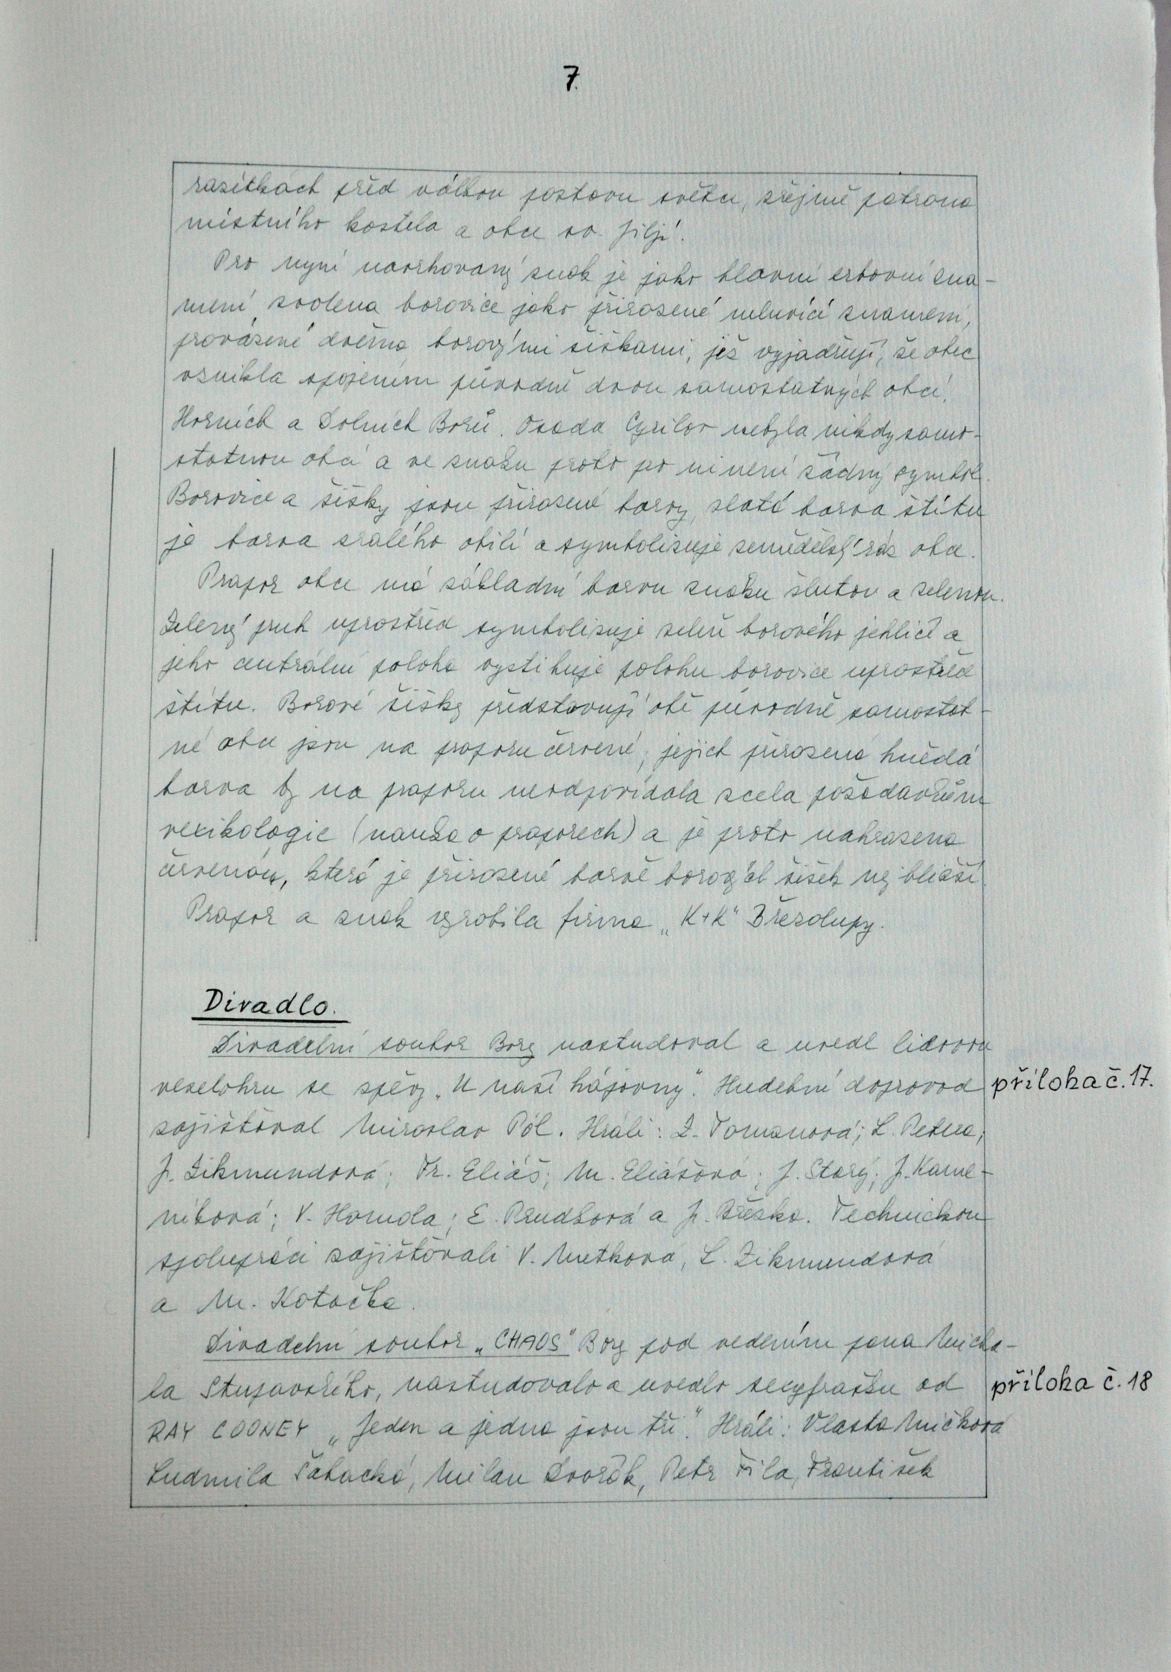 7.
razítkách před válkou postavu světce, zřejmě patrona
místního kostela a obce sv. Jiljí.
Pro nyní navrhovaný znak je jako hlavní erbovní zna-
mení zvolena borovice jako přirozené mluvící znamení,
provázené dvěma borovými šiškami, jež vyjadřují, že obec
vznikla spojením původně dvou samostatných obcí,
Horních a Dolních Borů. Osada Cyrilov nebyla nikdy samo-
statnou obcí a ve znaku proto po ni není žádný symbol.
Borovice a šišky jsou přirozené barvy, zlatá barva štítu
je barva zralého obilí a symbolizuje zemědělský ráz obce.
Prapor obce má základní barvu znaku žlutou a zelenou.
Zelený pruh uprostřed symbolizuje zeleň borového jehličí a
jeho centrální poloha vystihuje polohu borovice uprostřed
štítu. Borové šišky představují obě původně samostat-
né obce jsou na praporu červené, jejich přirozená hnědá
barva by na praporu neodpovídala zcela požadavkům
vexikologie (nauka o praporech) a je proto nahrazena
červenou, která je přirozené barvě borových šišek nejbližší.
Prapor a znak vyrobila firma „K+K“ Březolupy.
Divadlo.
Divadelní soubor Bory nastudoval a uvedl lidovou
veselohru se zpěvy „U naší hájovny“. Hudební doprovod
příloha č. 17.
zajišťoval Miroslav Pól. Hráli: Z. Tomanová; L. Petra;
J. Zikmundová; Fr. Eliáš; M. Eliášová; J. Starý; J. Kame-
níková; V. Homola; E. Prudková a J. Bříska. Technickou
spolupráci zajišťovali V. Mutková, L. Zikmundová
a M. Kotačka.
Divadelní soubor „CHAOS“ Bory pod vedením pana Micha-
la Stupavského, nastudovalo a uvedlo sexyfrašku od
příloha č. 18
RAY COONEY „Jeden a jedna jsou tři.“ Hráli: Vlasta Mičková
Ludmila Dvořák, Petr Fila, František